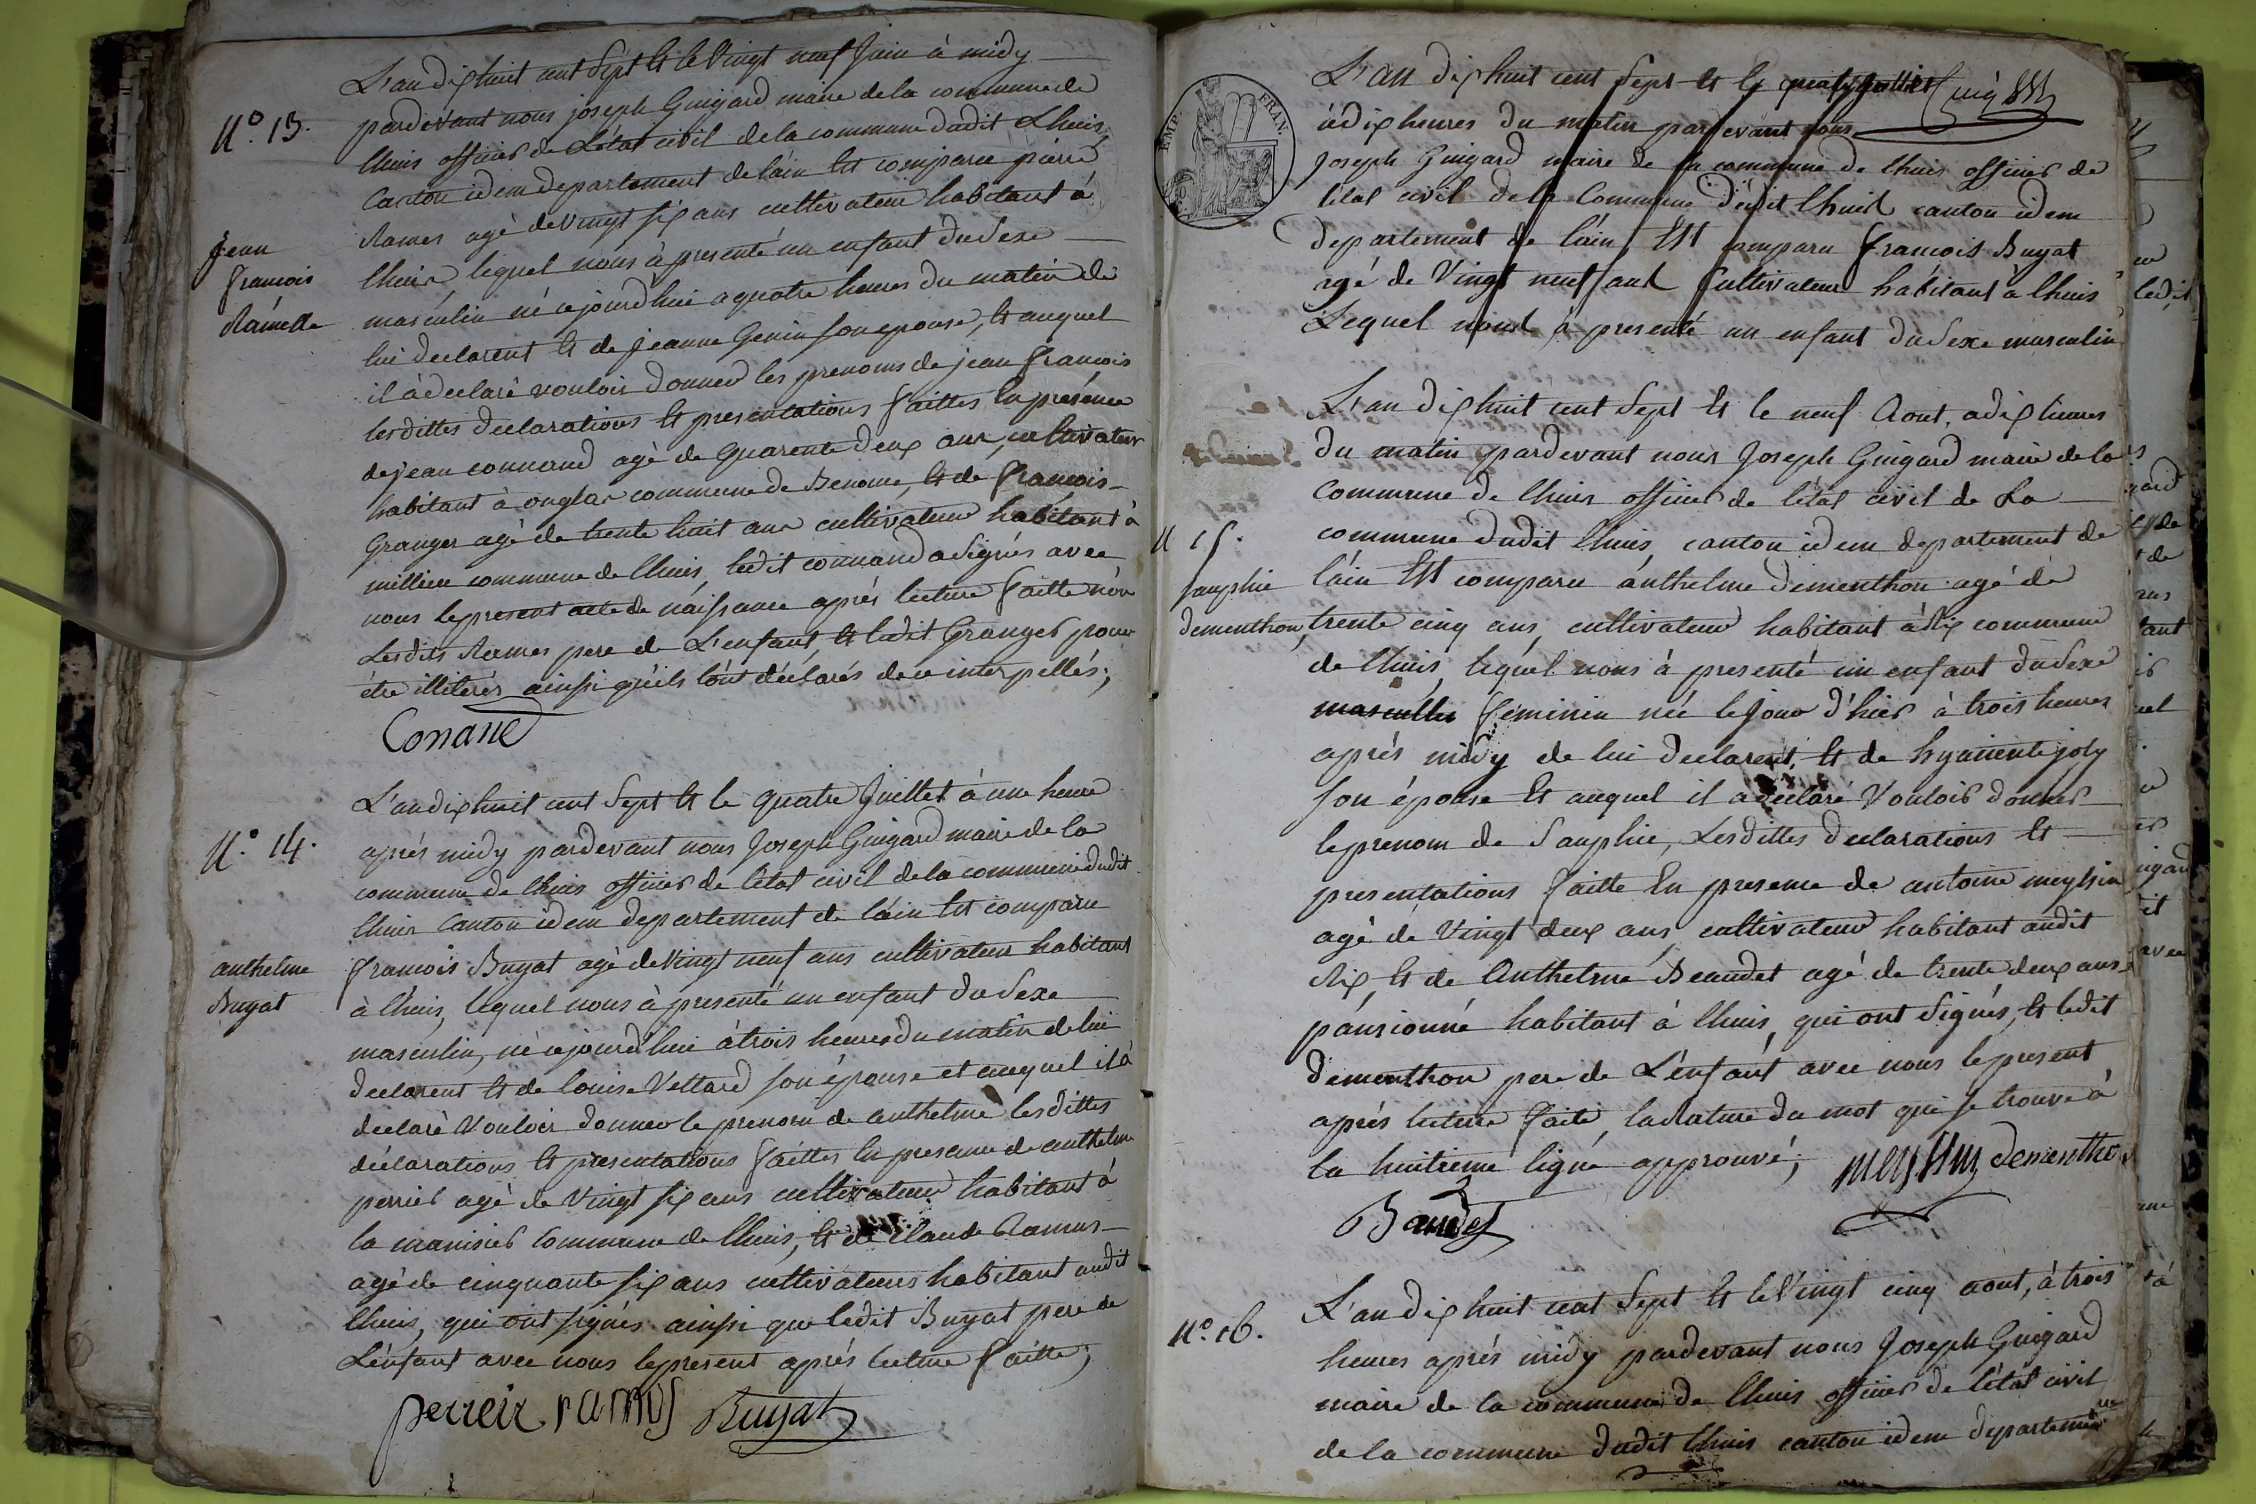 L'an dix huit cent Sept Et le Vingt neuf Juin à midy
N.° 13.
pardevant nous joseph Guigard maire de la commune de
lhuis officier de L'état civil de la commune dudit Lhuis,
Canton idem departement de l'ain Est comparu pierre
Ramer agé de Vingt six ans cultivateur habitant à
Jean
françois
Ramelle
lhuis lequel nous à presenté un enfant du Sexe
masculin né cejourd'hui a quatre heures du matin de
lui declarent Et de jeanne Genin son epouse, Et auquel
il à déclaré vouloir donner les prenoms de jean françois
lesdittes déclarations Et presentations faittes En présence
de jean connand agé de quarente deux ans, cultivateur
habitant à onglas commune de Benonce, Et de françois
Granger agé de trente huit ans cultivateur habitant à
millieu commune de lhuis, ledit connand a signés avec
nous le present acte de naissance après lecture faitte non
Lesdits Ramer pere de L'enfant, Et ledit Granger pour
être illiterés ainsi qu'ils l'ont déclarés de ce interpellés;
Conand
L'an dix huit cent Sept Et le quatre Juillet à une heure
N.° 14.
après midy pardevant nous Joseph Guigard maire de la
commune de lhuis officier de l'état civil de la commune dudit
lhuis Canton idem departement de l'ain Est comparu
anthelme
Buyat
francois Buyat agé de Vingt neuf ans cultivateur habitant
à lhuis, lequel nous à presenté un enfant du Sexe
masculin, né cejourd'hui à trois heures du matin de lui
declarent Et de louise Vettard son épouse et auquel il à
declaré Vouloir donner le prenom de anthelme lesdittes
déclarations Et presentations faittes En presence de anthelme
perrier agé de Vingt six ans cultivateur habitant à
la manisier commune de lhuis, Et de Claude Ramus
agé de cinquante six ans cultivateurs habitant audit
lhuis, qui ont signés ainsi que ledit Buyat pere de
L'enfant avec nous le present après lecture faitte;
perreir ramus Buyat
EMP. FRAN.
L'an dix huit cent Sept Et le quatre juillet
à dix heures du matin pardevant nous
Joseph Guigard maire de la commune de lhuis officier de
l'état civil de la Commune dudit lhuis canton idem
departement de l'ain, Est comparu francois Buyat
agé de Vingt neuf ans Cultivateur habitant à lhuis
Lequel nous à presenté un enfant du Sexe masculin
L'an dix huit cent Sept Et le neuf Aout, a dix heures
du matin pardevant nous Joseph Guigard maire de la
commune de lhuis officier de l'état civil de La
N 15.
commune dudit lhuis, canton idem departement de
Sauphie
dementhon,
l'ain Est comparu anthelme dementhon agé de
trente cinq ans, cultivateur habitant à Rix commune
de lhuis, lequel nous à presenté un enfant du Sexe
masculin féminin née le jour d'hier à trois heures
après midy de lui declarent, Et de hyacinte joly
son épouse Et auquel il a déclaré Vouloir donner
le prenom de Sauphie, Lesdittes declarations Et
presentations faitte En presence de antoine meyssin
agé de Vingt deux ans, cultivateur habitant audit
Rix, Et de Anthelme Beaudet agé de trente deux ans
pansionné habitant à lhuis, qui ont Signés, Et ledit
dementhon pere de L'enfant avec nous le present
après lecture faite, la Rature du mot qui se trouve à
la huitieme ligne approuvé; meyssin dementhon
Baudet
N.° 16.
L'an dix huit cent Sept Et le Vingt cinq aout, à trois
heures après midy pardevant nous Joseph Guigard
maire de la commune de lhuis officier de l'état civil
de la commune dudit lhuis canton idem departement